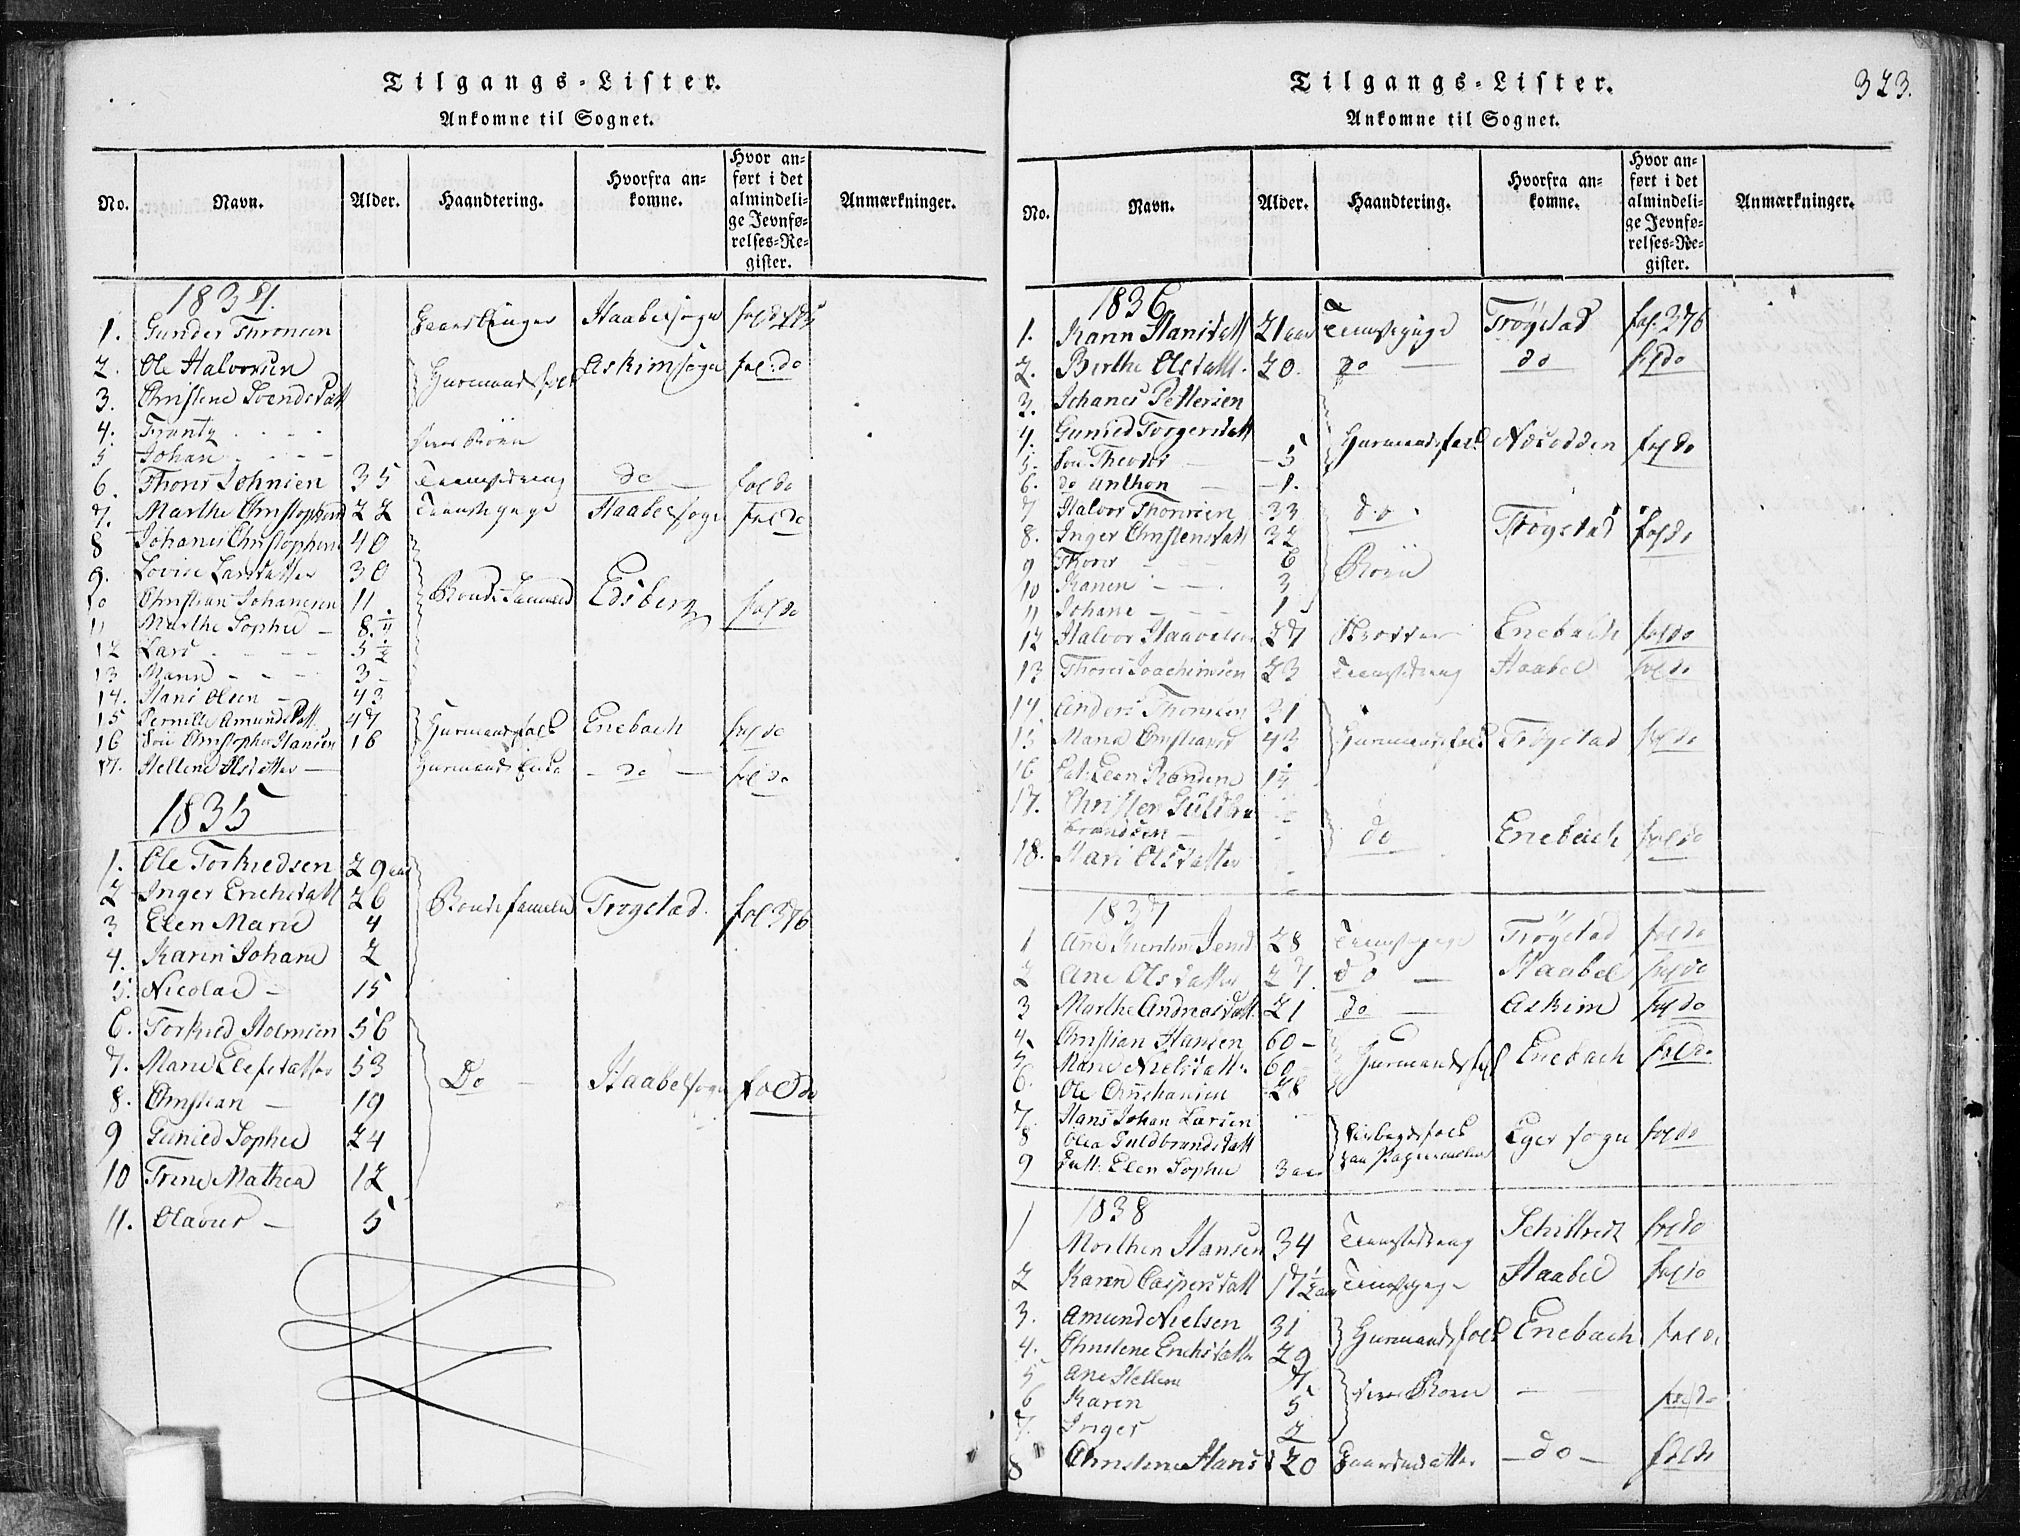 Tilgangs-Lister.
Ankomne til Sognet.
No. Navn. Alder. Haandtering. Hvorfra ankomne. Hvor anført i det almindelige Jevnførelses-Register. Anmærkninger.
1834.
1. Gunder Thronsen Haabølsogn
2. Ole Halvorsen Huusmandsfolk Askimsogn fol: do
3. Christene Svendsdatt
4. Frantz
5 Johan deres Børn
6. Thorer Johnsen 35 Tienestedreng do fol do
7. Marthe Christophersd 22 Tienestepige Haabølsogn fol do
8 Johanes Christophersen 40
9. Lovise Larsdatter 30 Bonde Familie Edsberg fol do
10 Christian Johanesen 11
11 Marthe Sophie 8 1/4
12 Lars 5 1/2
13 Maren 3
14. Hans Olsen 43
15 Pernille Amundsdatt 47 Huusmandsfolk Enebach fol do
16 Søn Christopher Hansen 16
17. Hellene Olsdatter Huusmands Enke do fol do
1835
1. Ole Torkildsen 29 aar
2 Inger Erichsdatt 26 Bondefamilie Trøgstad. fol. 376
3 Elen Marie 4
4. Karen Johane 2
5. Nicolai 15
6. Torkild Holmsen 56
7. Marie Elefsdatter 53 Do Haabølsogn fol do
8. Christian 19
9 Gunild Sophie 24
10 Trine Mathea 12
11. Olavus 5
323.
Tilgangs-Lister.
Ankomne til Sognet.
No. Navn. Alder. Haandtering. Hvorfra ankomne. Hvor anført i det almindelige Jevnførelses-Register. Anmærkninger.
1836
1. Karen Hansdatt 21 aar Tienestepige Trøgstad fol. 376
2. Berthe Olsdatt. 20. do do fol do
3. Johanes Pettersen
4. Gunild Torgersdatt Huusmandsfolk Næsodden fol do
5. Søn Theodor 5
6. do Anthon 1.
7 Halvor Thorersen 33 do Trøgstad fol do
8. Inger Christensdatt 32
9 Thorer 6 Børn
10 Karen 3
11 Johane 1
12 Halvor Haavelsen 27 Enebach fol do
13 Thorer Joachimsen 23 Tienestedreng Haabøl fol do
14. Anders Thorersen 31
15 Maria 42 Huusmandsfolk Trøgstad fol do
16 1 1/4
17. Christen Guldbrandsen do Enebach fol do
18. Kari Olsdatter
1837
1 Ane Kirstine Jensd 28 Tienestepige Trøgstad fol do
2 Ane Olsdatter 27. do Haabøl fol do
3 Marthe Andreasdatt. 21 do Askim fol do
4. Christian Hansen 60 Huusmandsfolk Enebach fol do
5. Marie Nielsdatt. 60
6. Ole Christiansen 28
7. Hans Johan Larsen
8 Olea Guldbrandsdatt Eger sogn fol do
9 Datt: Elen Sophie 3 aar
1838
1 Morthen Hansen 34 Tienestedreng fol do
2 Karen Caspersdatt 17 1/2 aar Tienestepige Haabøl fol do
3. Amund Nielsen 31 Huusmandsfolk Enebach fol do
4. Christene Erichsdatter 29
5 Ane Hellene 7.
6 Karen 5 deres Børn fol do
7. Inger 2
8 Christene Hansd 20 Gaardmdatter do fol do